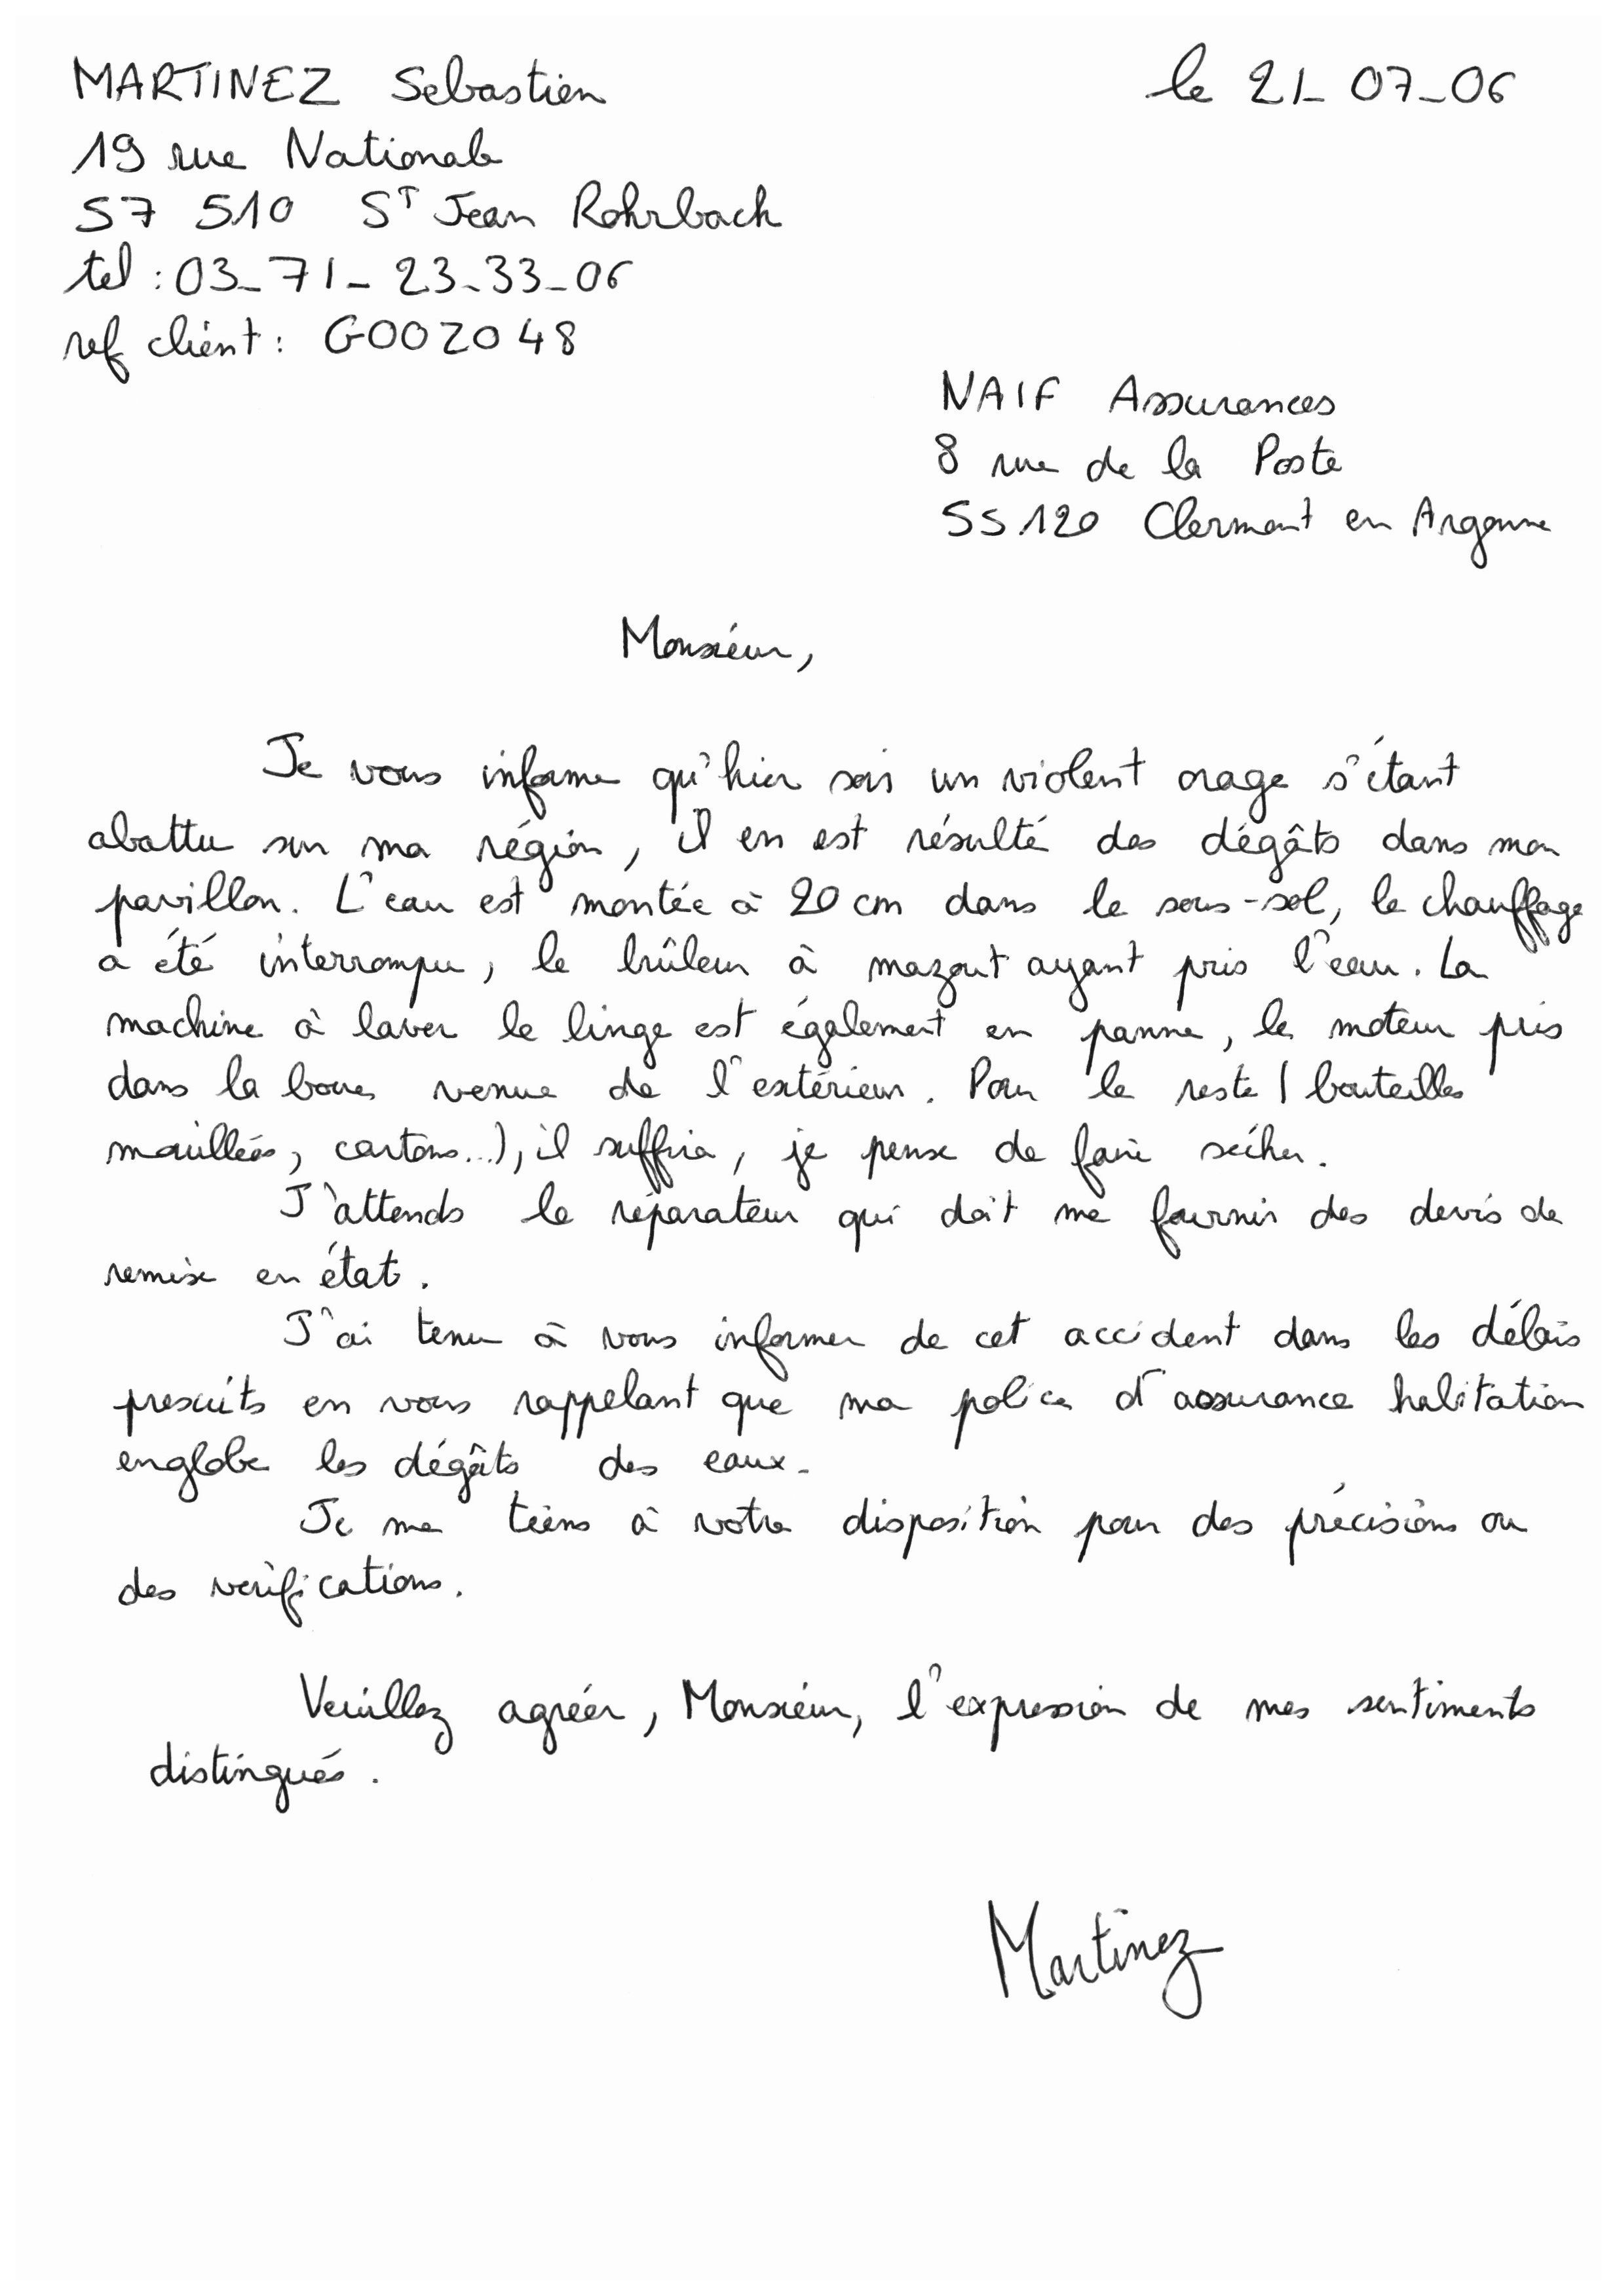 MARTINEZ Sebastien
le 21_07_06
19 rue Nationale
57 510 ST Jean Rohrbach
tel : 03_71_23_33_06
ref client : G002048
NAIF Assurances
8 rue de la Poste
55120 Clermont en Argonne
Monsieur,
Je vous informe qu'hier soir un violent orage s'étant
abattu sur ma région, il en est résulté des dégâts dans mon
pavillon. L'eau est montée à 20 cm dans le sous-sol, le chauffage
a été interrompu, le brûleur à mazout ayant pris l'eau. La
machine à laver le linge est également en panne, le moteur pris
dans la boue venue de l'extérieur. Pour le reste (bouteilles
mouillées, cartons...), il suffira, je pense de faire sécher.
J'attends le réparateur qui doit me fournir des devis de
remise en état.
J'ai tenu à vous informer de cet accident dans les délais
prescrits en vous rappelant que ma police d'assurance habitation
englobe les dégâts des eaux.
Je me tiens à votre disposition pour des précisions ou
des vérifications.
Veuillez agréer, Monsieur, l'expression de mes sentiments
distingués.
Martinez